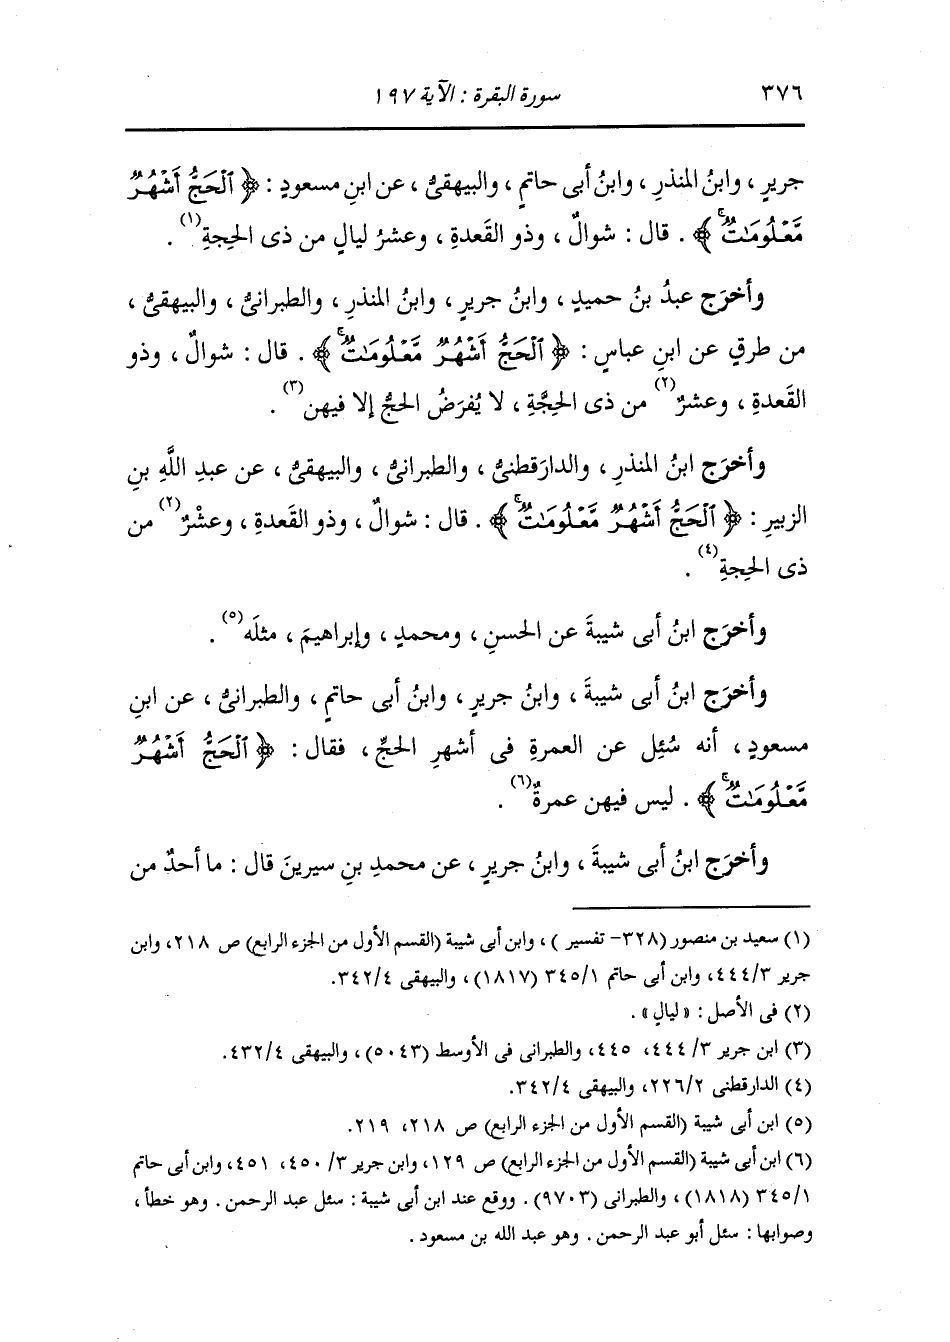 ٣٧٦ سورة البقرة : الآية ١٩٧
جريرٍ ، وابنُ المنذرِ ، وابنُ أبى حاتمٍ ، والبيهقىُّ ، عن ابنِ مسعودٍ : ﴿ ٱلْحَجُّ أَشْهُرٌ
مَّعْلُومَـٰتٌۚ ﴾ . قال : شوالٌ ، وذو القَعدةِ ، وعشرُ ليالٍ من ذى الحِجةِ(١) .
وأخرَج عبدُ بنُ حميدٍ ، وابنُ جريرٍ ، وابنُ المنذرِ ، والطبرانىُّ ، والبيهقىُّ ،
من طرقٍ عن ابنِ عباسٍ : ﴿ ٱلْحَجُّ أَشْهُرٌ مَّعْلُومَـٰتٌۚ ﴾ . قال : شوالٌ ، وذو
القَعدةِ ، وعشرٌ(٢) من ذى الحِجَّةِ ، لا يُفرَضُ الحجُّ إلا فيهن(٣) .
وأخرَج ابنُ المنذرِ ، والدارَقطنىُّ ، والطبرانىُّ ، والبيهقىُّ ، عن عبدِ اللَّهِ بنِ
الزبيرِ : ﴿ ٱلْحَجُّ أَشْهُرٌ مَّعْلُومَـٰتٌۚ ﴾ . قال : شوالٌ ، وذو القَعدةِ ، وعشْرٌ(٢) من
ذى الحِجةِ(٤) .
وأخرَج ابنُ أبى شيبةَ عن الحسنِ ، ومحمدٍ ، وإبراهيمَ ، مثلَه(٥) .
وأخرَج ابنُ أبى شيبةَ ، وابنُ جريرٍ ، وابنُ أبى حاتمٍ ، والطبرانىُّ ، عن ابنِ
مسعودٍ ، أنه سُئِل عن العمرةِ فى أشهرِ الحجِّ ، فقال : ﴿ ٱلْحَجُّ أَشْهُرٌ
مَّعْلُومَـٰتٌۚ ﴾ . ليس فيهن عمرةٌ(٦) .
وأخرَج ابنُ أبى شيبةَ ، وابنُ جريرٍ ، عن محمدِ بنِ سيرينَ قال : ما أحدٌ من
(١) سعيد بن منصور (٣٢٨- تفسير ) ، وابن أبى شيبة (القسم الأول من الجزء الرابع) ص ٢١٨، وابن
جرير ٤٤٤/٣، وابن أبى حاتم ٣٤٥/١ (١٨١٧) ، والبيهقى ٣٤٢/٤.
(٢) فى الأصل : « ليالٍ » .
(٣) ابن جرير ٣/ ٤٤٤، ٤٤٥، والطبرانى فى الأوسط (٥٠٤٣) ، والبيهقى ٤٣٢/٤.
(٤) الدارقطنى ٢٢٦/٢، والبيهقى ٣٤٢/٤.
(٥) ابن أبى شيبة (القسم الأول من الجزء الرابع) ص ٢١٨، ٢١٩.
(٦) ابن أبى شيبة (القسم الأول من الجزء الرابع) ص ١٢٩، وابن جرير ٣/ ٤٥٠، ٤٥١، وابن أبى حاتم
٣٤٥/١ (١٨١٨) ، والطبرانى (٩٧٠٣) . ووقع عند ابن أبى شيبة : سئل عبد الرحمن . وهو خطأ ،
وصوابها : سئل أبو عبد الرحمن . وهو عبد الله بن مسعود .